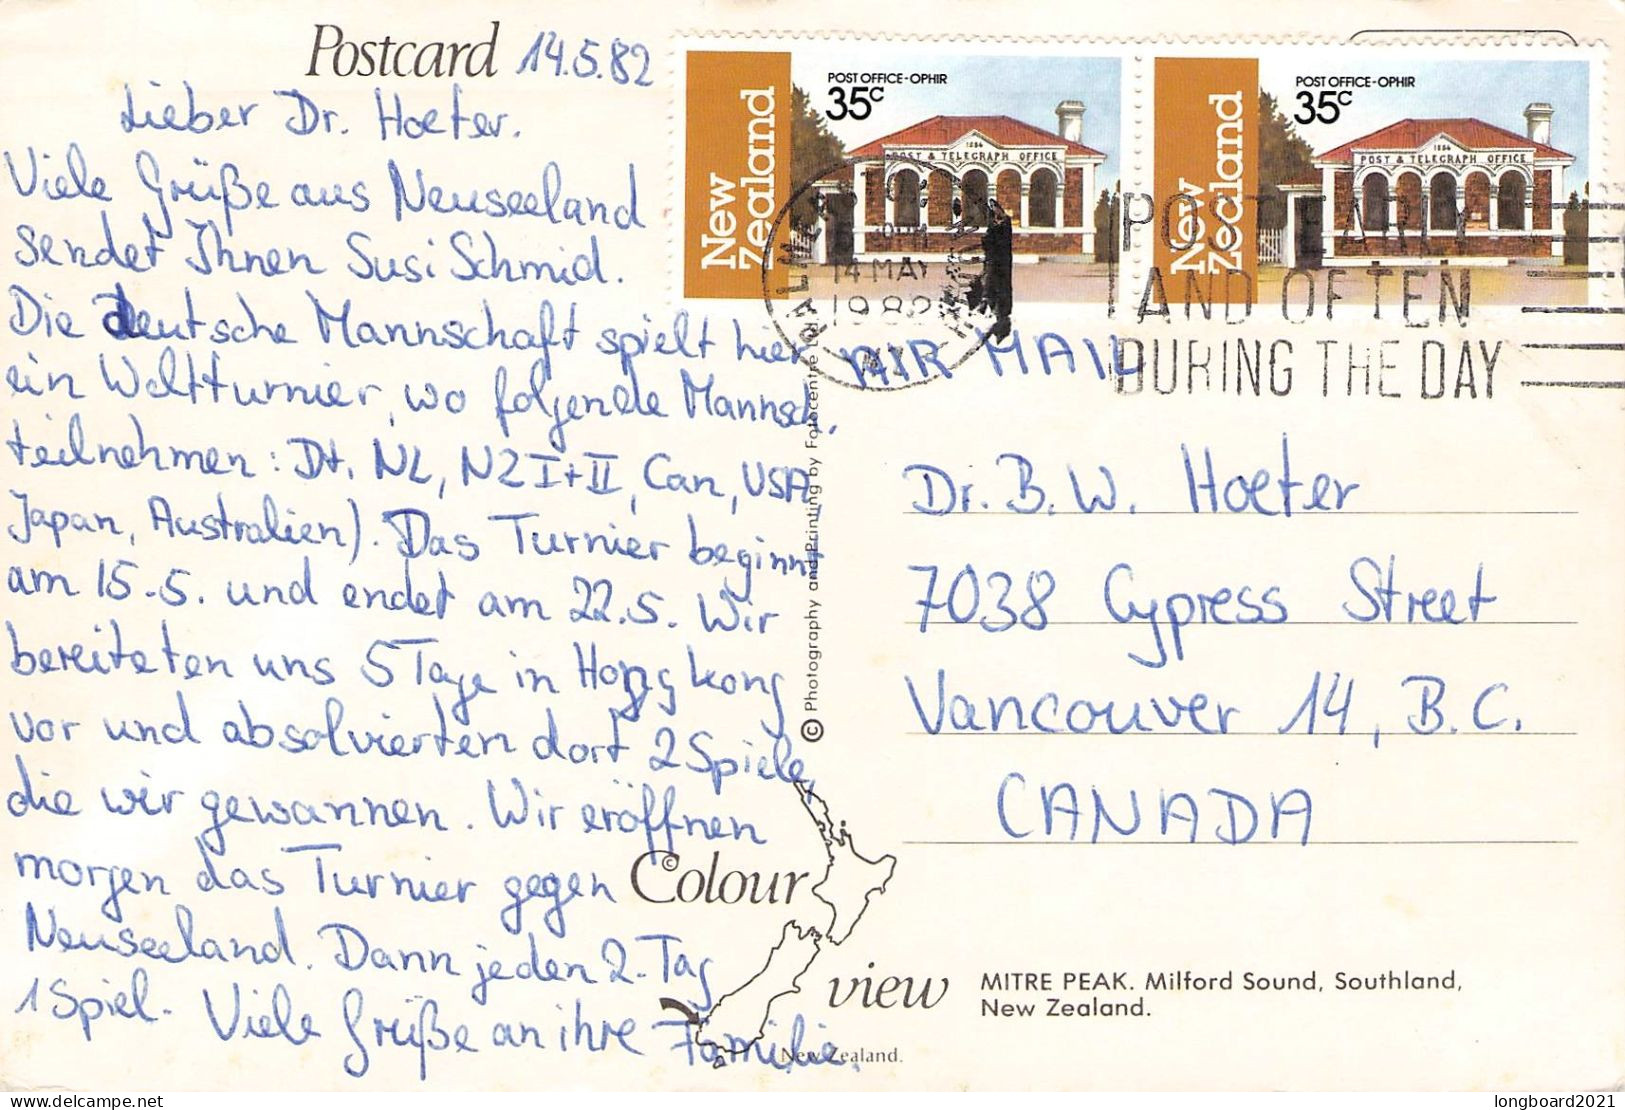 Postcard 14.5.82
Lieber Dr. Hoeter.
Viele Grüße aus Neuseeland
sendet Ihnen Susi Schmid.
Die deutsche Mannschaft spielt hier
ein Weltturnier, wo folgende Mannsch.
teilnehmen: Dt. NL, NZ I+II, Can, USA
Japan, Australien). Das Turnier beginnt
am 15.5. und endet am 22.5. Wir
bereiteten uns 5 Tage in Hongkong
vor und absolvierten dort 2 Spiele,
die wir gewannen. Wir eröffnen
morgen das Turnier gegen
Neuseeland. Dann jeden 2. Tag
1 Spiel. Viele Grüße an ihre Familie.
New Zealand
POST OFFICE-OPHIR
35c
1886
POST & TELEGRAPH OFFICE
New Zealand
POST OFFICE-OPHIR
35c
1886
POST & TELEGRAPH OFFICE
PALMERSTON NORTH
14 MAY
1982
POST EARLY
AND OFTEN
DURING THE DAY
AIR MAIL
Dr. B. W. Hoeter
7038 Cypress Street
Vancouver 14, B.C.
CANADA
© Photography and Printing by Fotocentre
© Colour
view
New Zealand.
MITRE PEAK. Milford Sound, Southland,
New Zealand.
delcampe.net
longboard2021